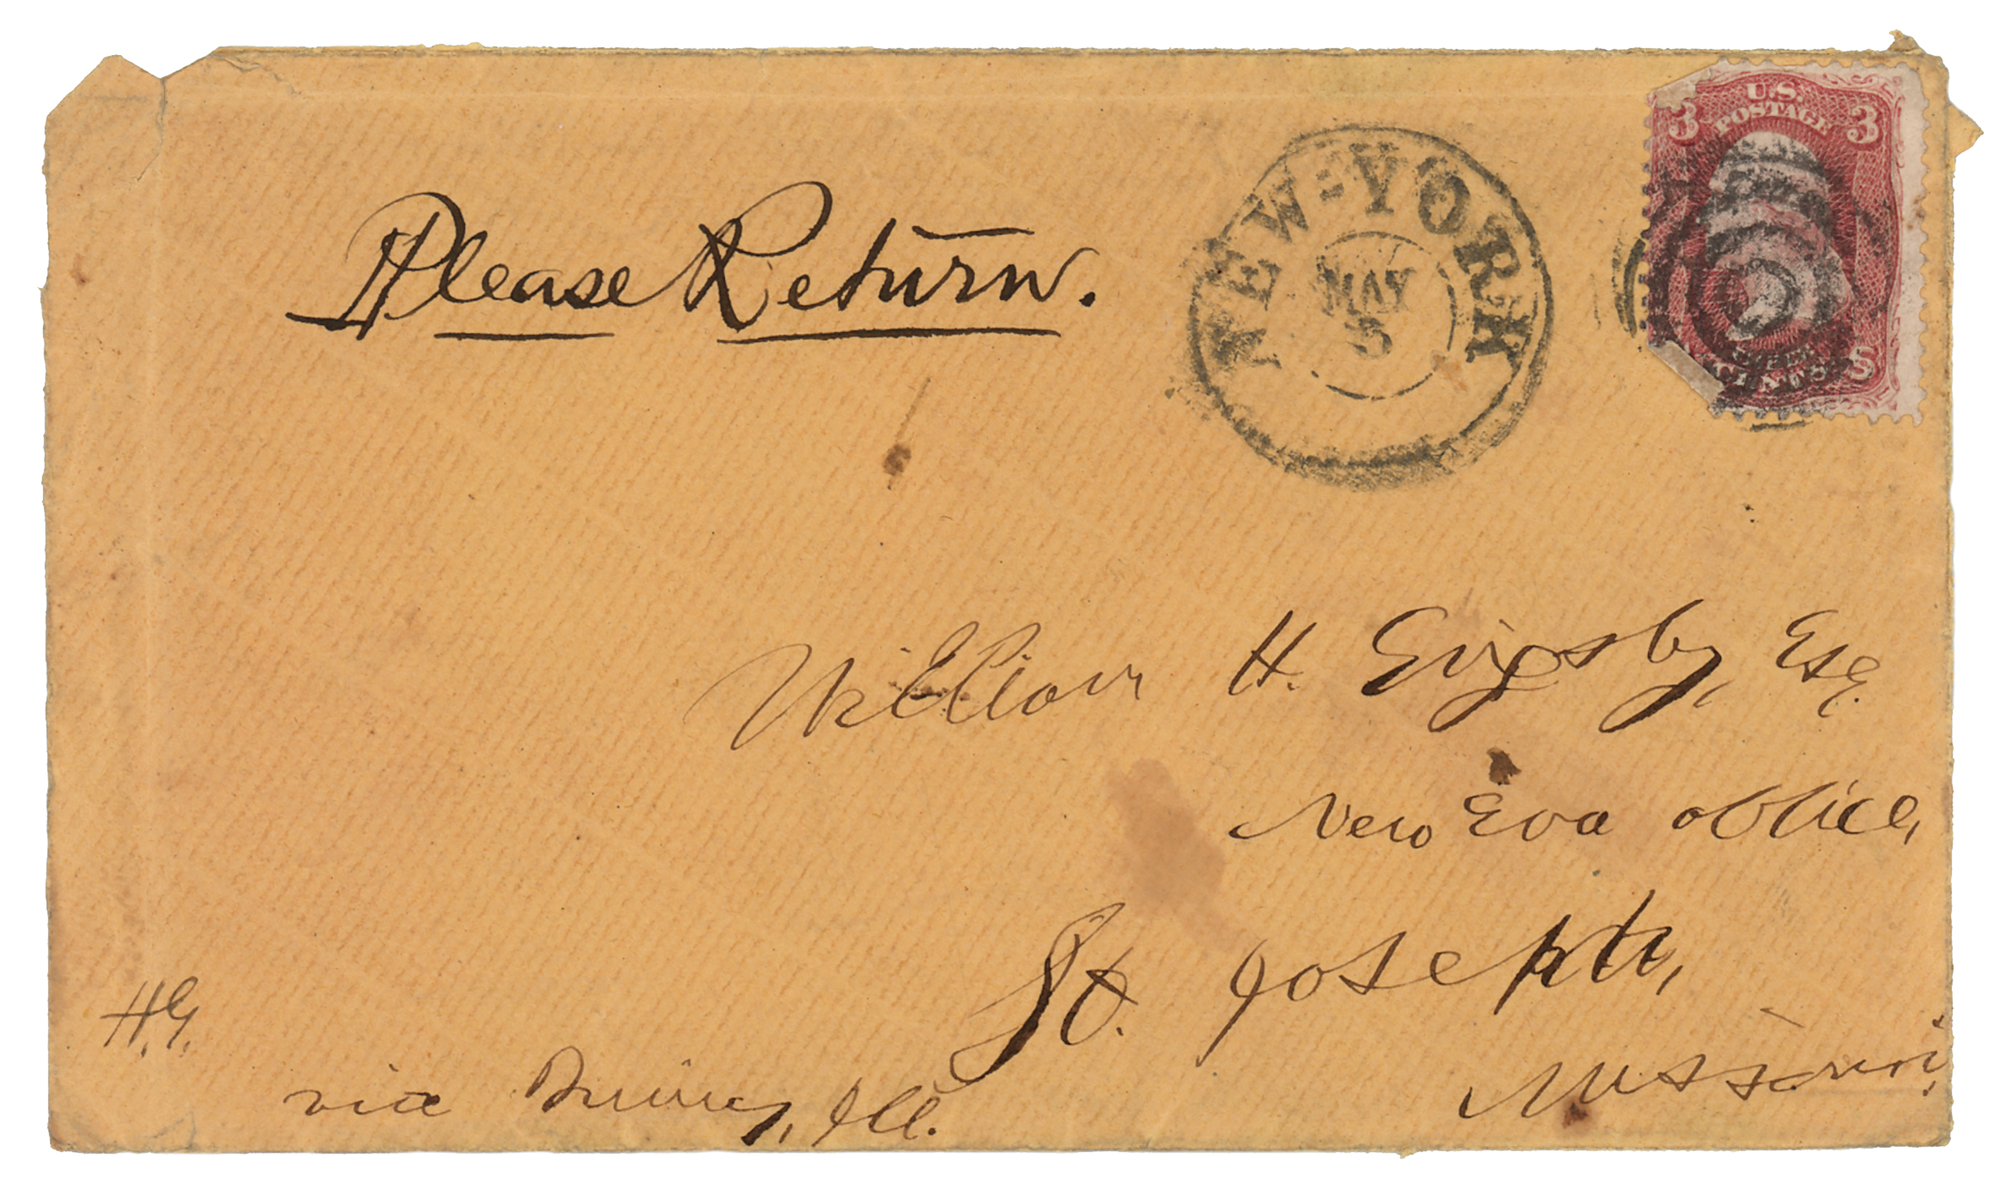 Please Return.
NEW-YORK
MAY
5
U.S.
POSTAGE
3 3
CENTS
William H. Grigsby, Esq.
New Era office,
St. Joseph,
Missouri.
H.G.
via Quincy, Ill.